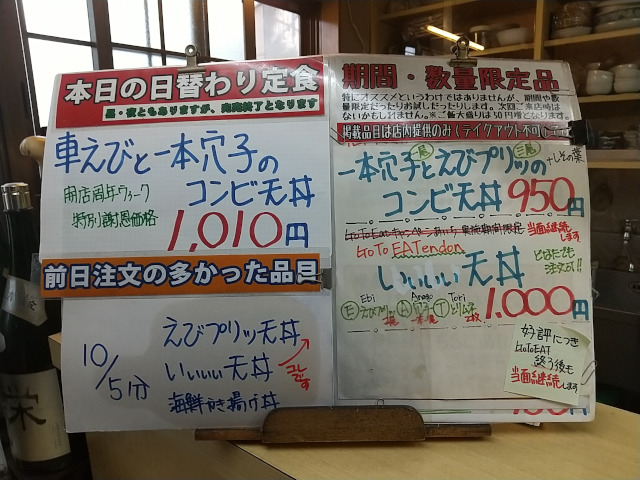 本日の日替わり定食
昼・夜ともありますが、完売終了となります
車えびと一本穴子の
コンビ天丼
開店周年ウィーク
特別謝恩価格
1,010円
前日注文の多かった品目
10/5分
えびプリッ天丼
いいいい天丼
コレです
海鮮かき揚げ丼
期間・数量限定品
特にオススメというわけではありませんが、期間や数
量限定だったりお試しだったりします。次回ご来店時は
ないかもしれません。※ご飯大盛りは50円増となります
掲載品目は店内提供のみ(テイクアウト不可)
一本穴子とえびプリッの
一尾
三尾
+しその葉
コンビ天丼 950円
GoToEatキャンペーンあいち 実施期間限定
当面継続します
GoTo EATendon
いいいい天丼
どなたでも
注文可!!
Ebi
Anago
Tori
1,000円
好評につき
GoToEAT
終了後も
当面継続します